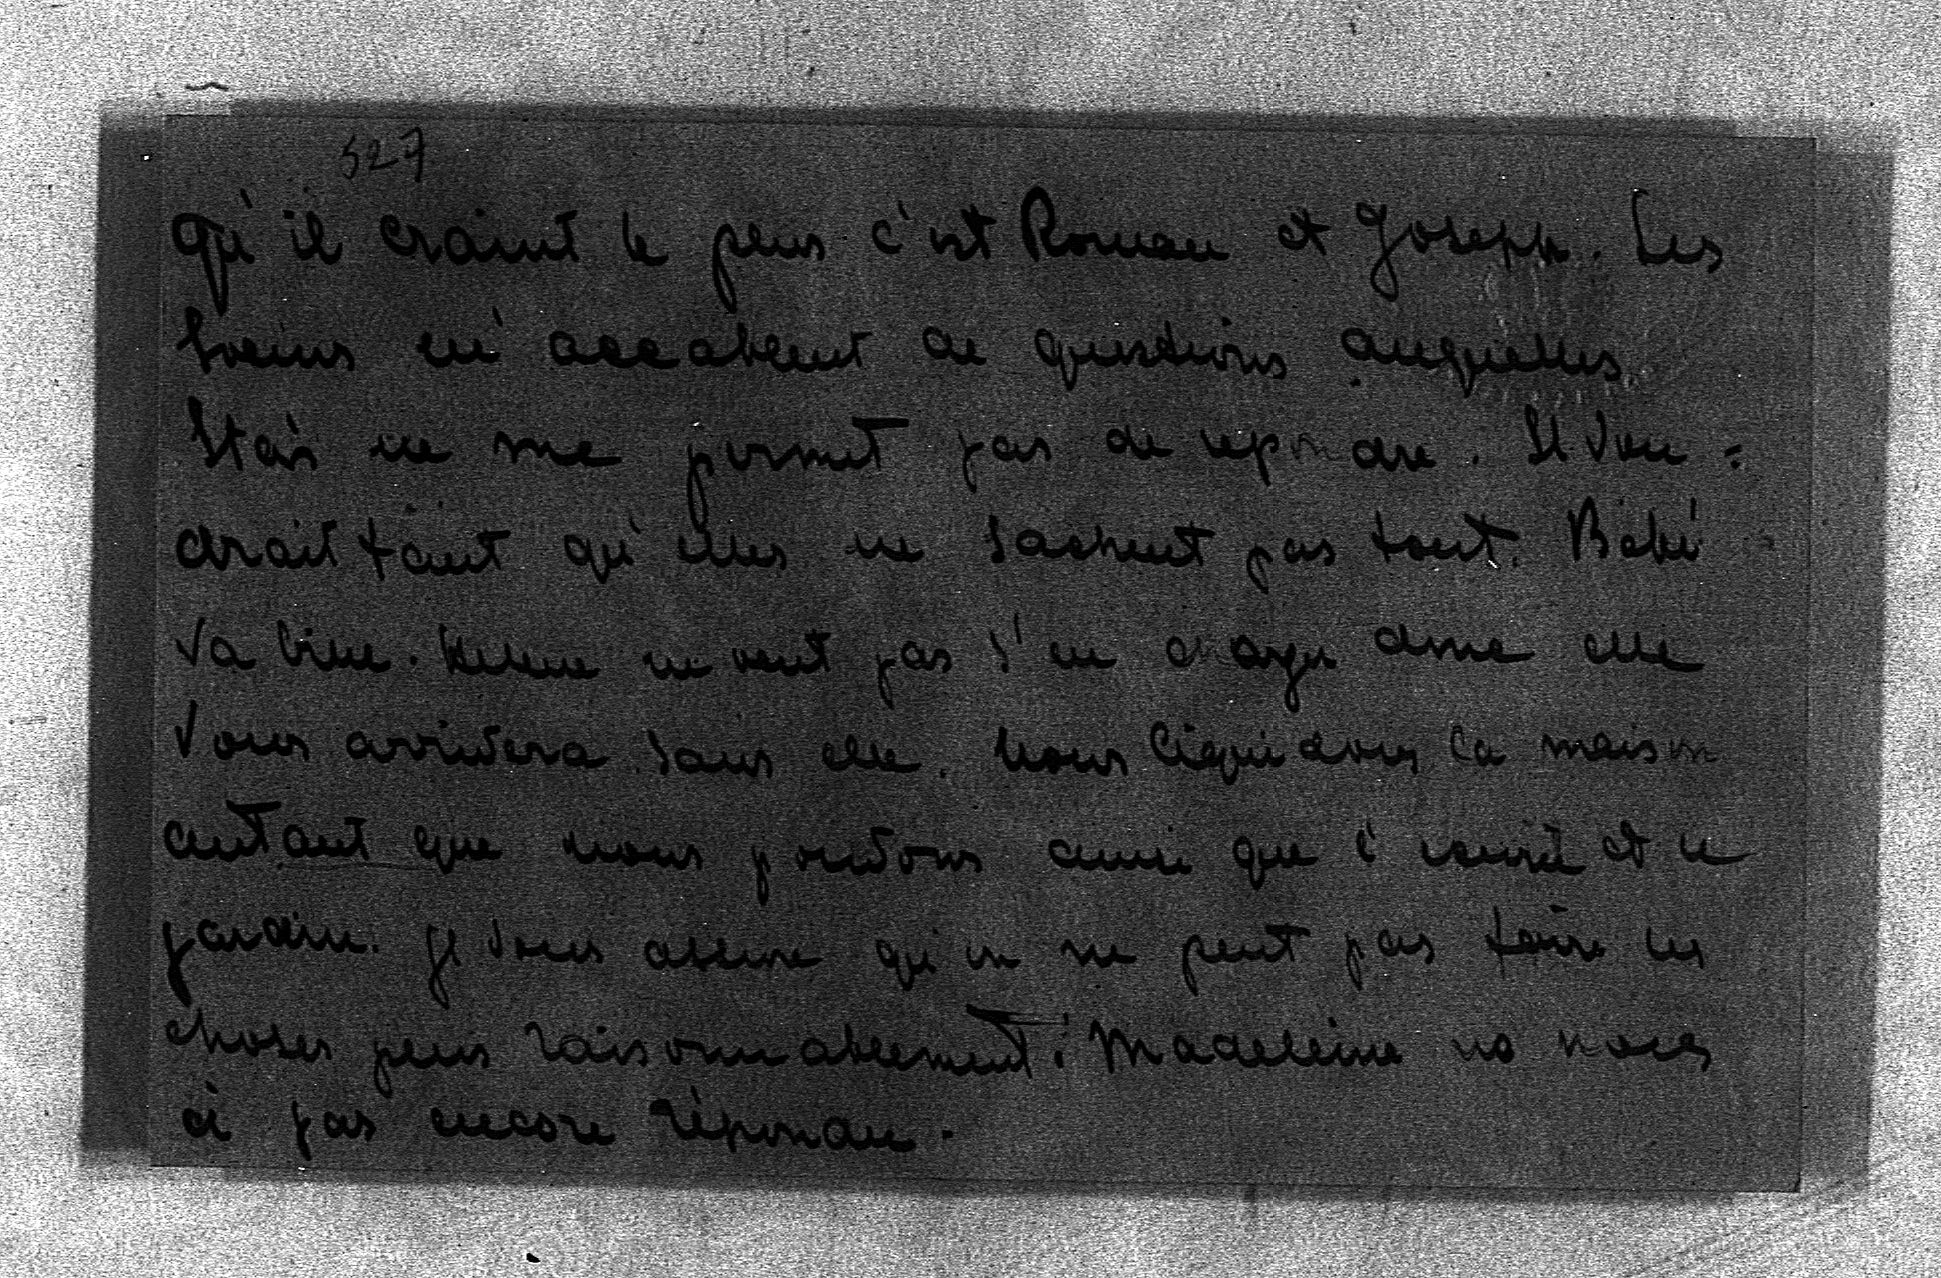 527
qu'il craint le plus c'est Roman et Joseph. Les
Soeurs m'accablent de questions auxquelles
Stás ne me permet pas de repondre. Il vou=
drait tant qu'elles ne sachent pas tout. Bébé
va bien. Helene ne veut pas s'en charger donc elle
vous arrivera sans elle. Nous liquidons la maison
autant que nous pouvons ainsi que l'écurie et le
jardin. Je vous assure qu'on ne peut pas faire les
choses plus raisonnablement. Madeleine ne nous
a pas encore répondu.